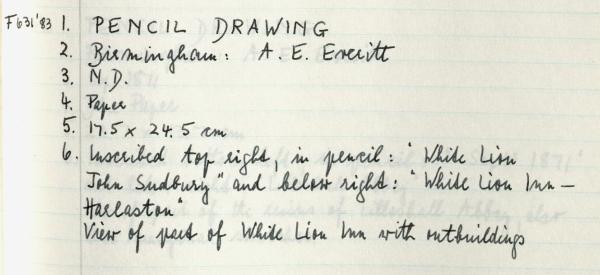 F631'83 1. PENCIL DRAWING
2. Birmingham: A. E. Everitt
3. N.D.
4. Paper
5. 17.5 x 24.5 cm
6. Inscribed top right, in pencil: "White Lion
John Sudbury" and below right: "White Lion Inn –
Harlaston"
View of part of White Lion Inn with outbuildings